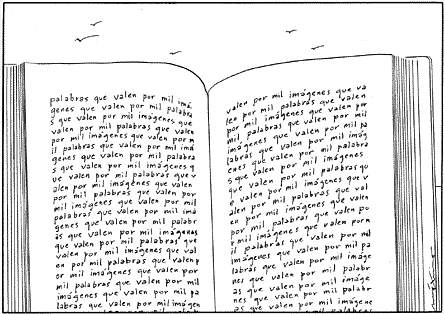 palabras que valen por mil imá
genes que valen por mil palabra
s que valen por mil imágenes que
valen por mil palabras que valen
por mil imágenes que valen por m
il palabras que valen por mil imá
genes que valen por mil palabra
s que valen por mil imágenes q
ue valen por mil palabras que v
alen por mil imágenes que valen
por mil palabras que valen por
mil imágenes que valen por mil
palabras que valen por mil imá
genes que valen por mil palabr
as que valen por mil imágenes
que valen por mil palabras que
valen por mil imágenes que val
en por mil palabras que valen p
or mil imágenes que valen por
mil palabras que valen por mil
imágenes que valen por mil pa
labras que valen por mil imágen
valen por mil imágenes que va
len por mil palabras que valen
por mil imágenes que valen por
mil palabras que valen por mil
imágenes que valen por mil pa
labras que valen por mil imág
enes que valen por mil palabra
s que valen por mil imágenes
que valen por mil palabras qu
e valen por mil imágenes que v
alen por mil palabras que val
en por mil imágenes que valen
por mil palabras que valen po
r mil imágenes que valen por m
il palabras que valen por mil
imágenes que valen por mil pa
labras que valen por mil imág
enes que valen por mil palabr
as que valen por mil imágenes
que valen por mil palabras